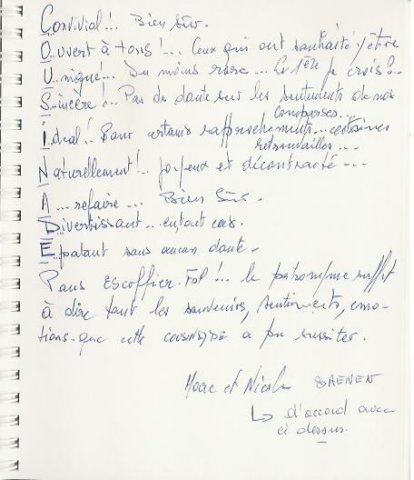 Convivial !.. Bien sûr.
Ouvert à tous !... Ceux qui ont souhaité y être
Unique !... Du moins rare... La 1ère je crois ?..
Sincère !... Pas de doute sur les sentiments de nos
comparses...
Idéal !.. Pour certains rapprochements... certaines
retrouvailles...
Naturellement !.. joyeux et décontracté...
A... refaire... Bien Sûr.
Divertissant.. en tout cas.
Epatant sans aucun doute.
Paris Escoffier. Fol !... le patronyme suffit
à dire tout les souvenirs, sentiments, émo-
tions que cette COUSINADE a pu susciter.
Marc et Nicole SAENEN
↳ d'accord avec
ci dessus.